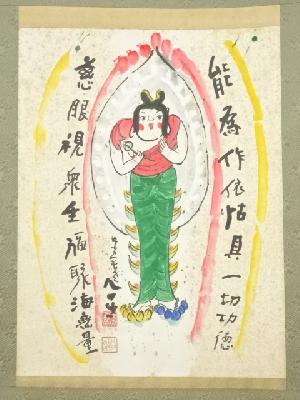 能為作依怙具一切功徳
慈眼視衆生福聚海無量